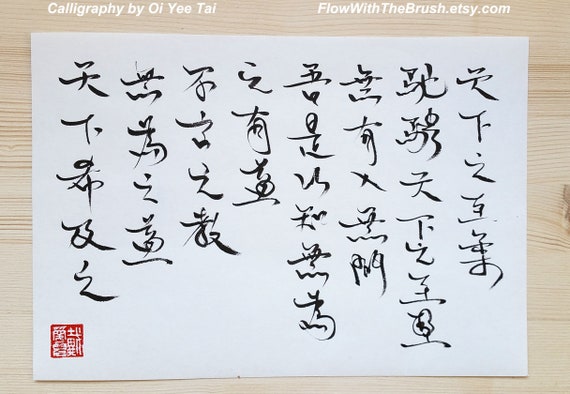 Calligraphy by Oi Yee Tai
FlowWithTheBrush.etsy.com
天下之至柔
馳騁天下之至堅
無有入無間
吾是以知無為
之有益
不言之教
無為之益
天下希及之